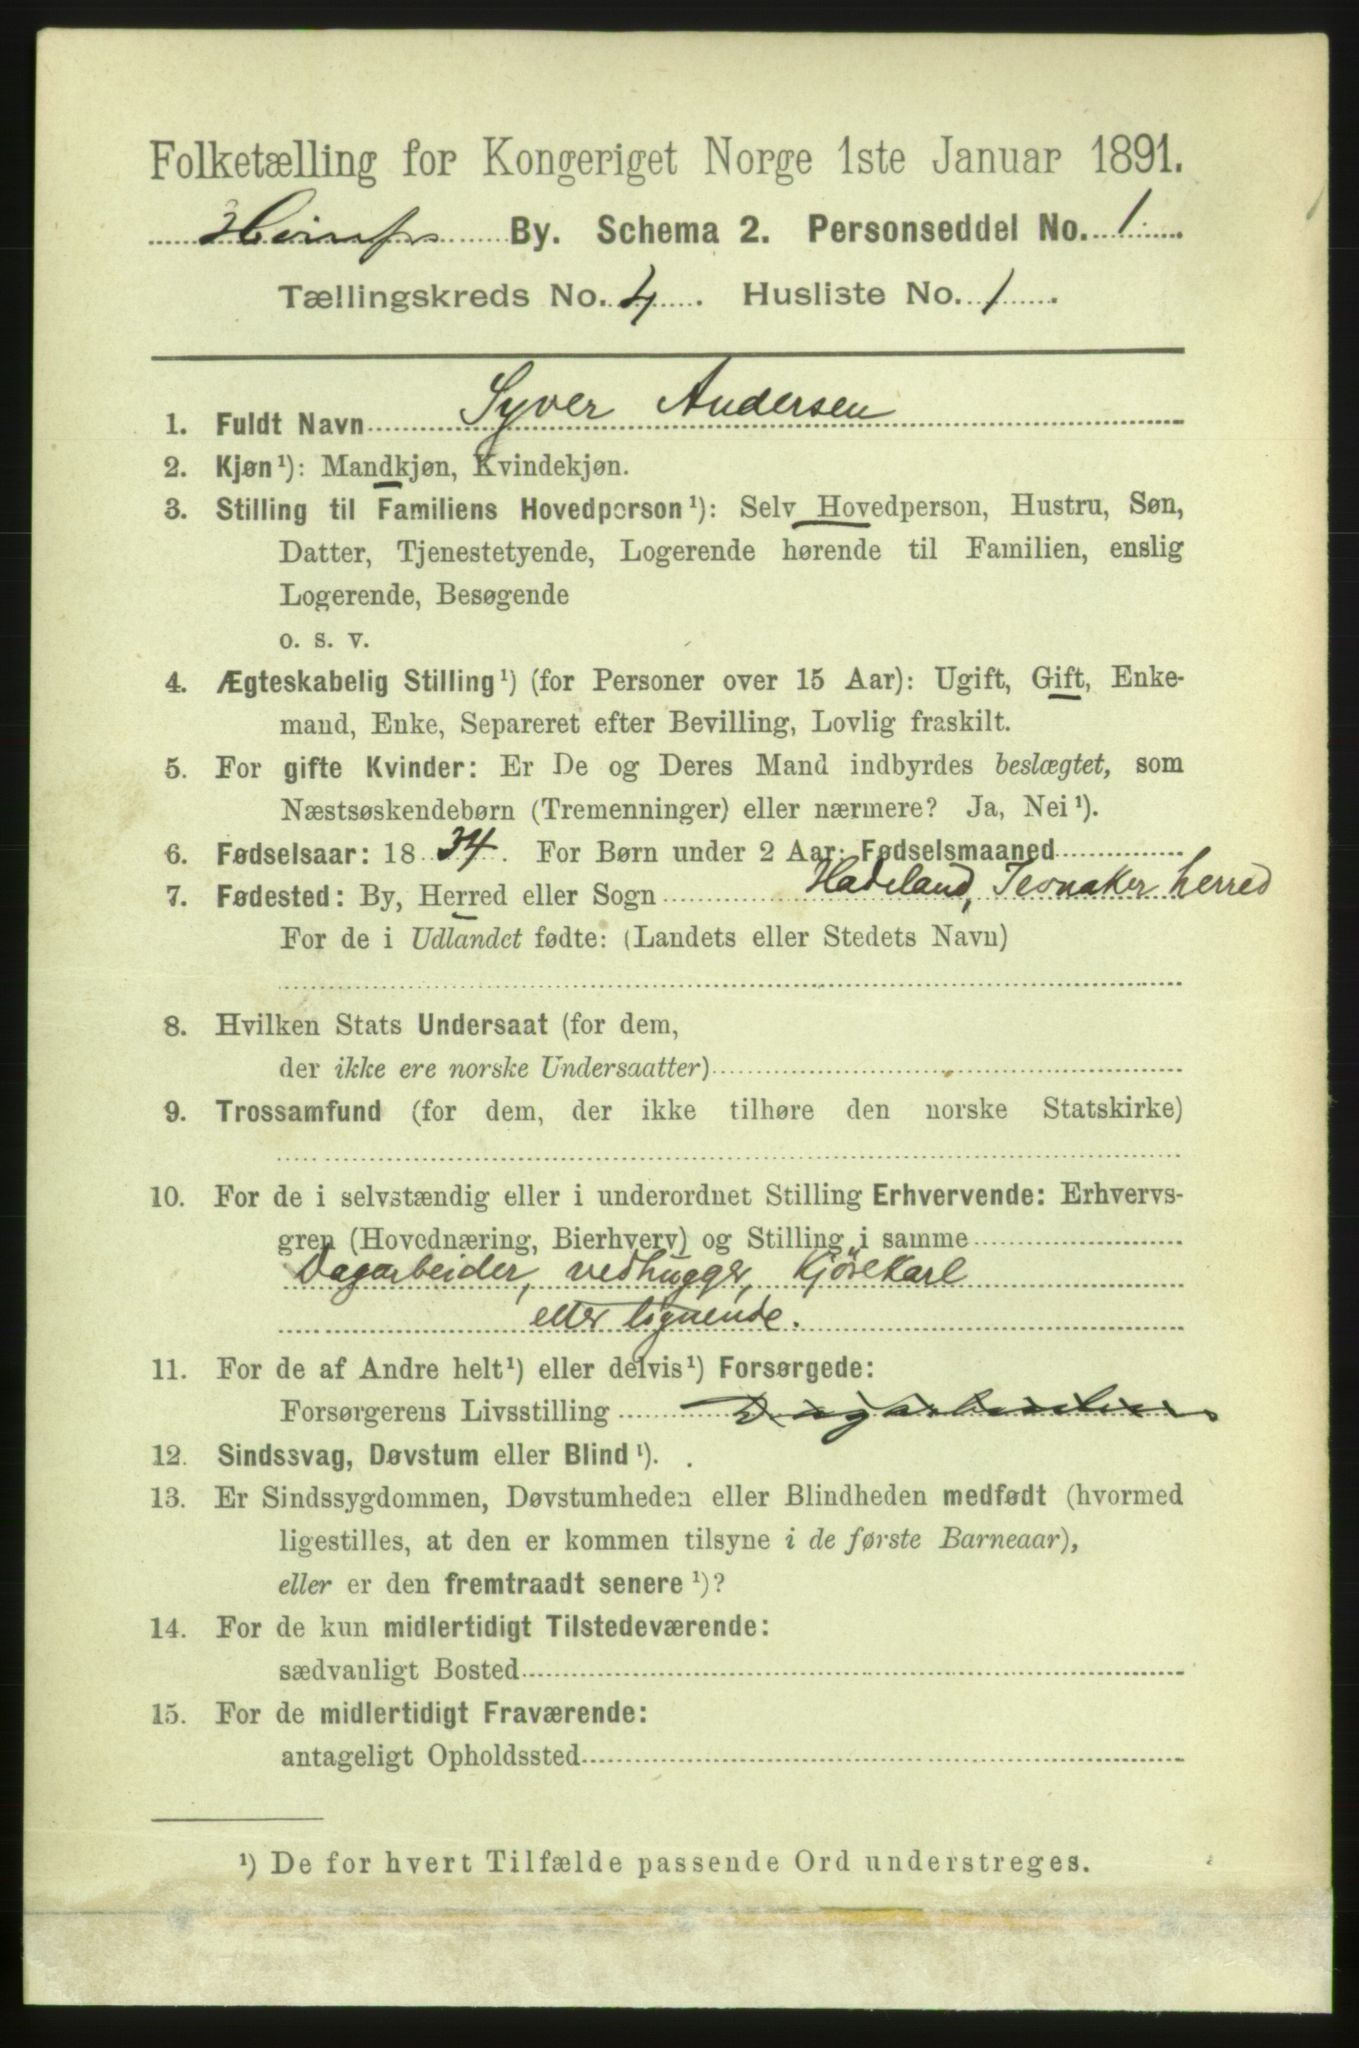 Folketælling for Kongeriget Norge 1ste Januar 1891.
By. Schema 2. Personseddel No. 1.
Tællingskreds No. 4. Husliste No. 1.
1. Fuldt Navn Syver Andersen
2. Kjøn¹): Mandkjøn, Kvindekjøn.
3. Stilling til Familiens Hovedperson¹): Selv Hovedperson, Hustru, Søn,
Datter, Tjenestetyende, Logerende hørende til Familien, enslig
Logerende, Besøgende
o. s. v.
4. Ægteskabelig Stilling¹) (for Personer over 15 Aar): Ugift, Gift, Enke-
mand, Enke, Separeret efter Bevilling, Lovlig fraskilt.
5. For gifte Kvinder: Er De og Deres Mand indbyrdes beslægtet, som
Næstsøskendebørn (Tremenninger) eller nærmere? Ja, Nei¹).
6. Fødselsaar: 1834. For Børn under 2 Aar: Fødselsmaaned
7. Fødested: By, Herred eller Sogn Hadeland, Jevnaker herred
For de i Udlandet fødte: (Landets eller Stedets Navn)
8. Hvilken Stats Undersaat (for dem,
der ikke ere norske Undersaatter)
9. Trossamfund (for dem, der ikke tilhøre den norske Statskirke)
10. For de i selvstændig eller i underordnet Stilling Erhvervende: Erhvervs-
gren (Hovednæring, Bierhverv) og Stilling i samme
Dagarbeider, vedhugger, Kjørekarl
eller lignende.
11. For de af Andre helt¹) eller delvis¹) Forsørgede:
Forsørgerens Livsstilling
12. Sindssvag, Døvstum eller Blind¹).
13. Er Sindssygdommen, Døvstumheden eller Blindheden medfødt (hvormed
ligestilles, at den er kommen tilsyne i de første Barneaar),
eller er den fremtraadt senere¹)?
14. For de kun midlertidigt Tilstedeværende:
sædvanligt Bosted
15. For de midlertidigt Fraværende:
antageligt Opholdssted
¹) De for hvert Tilfælde passende Ord understreges.